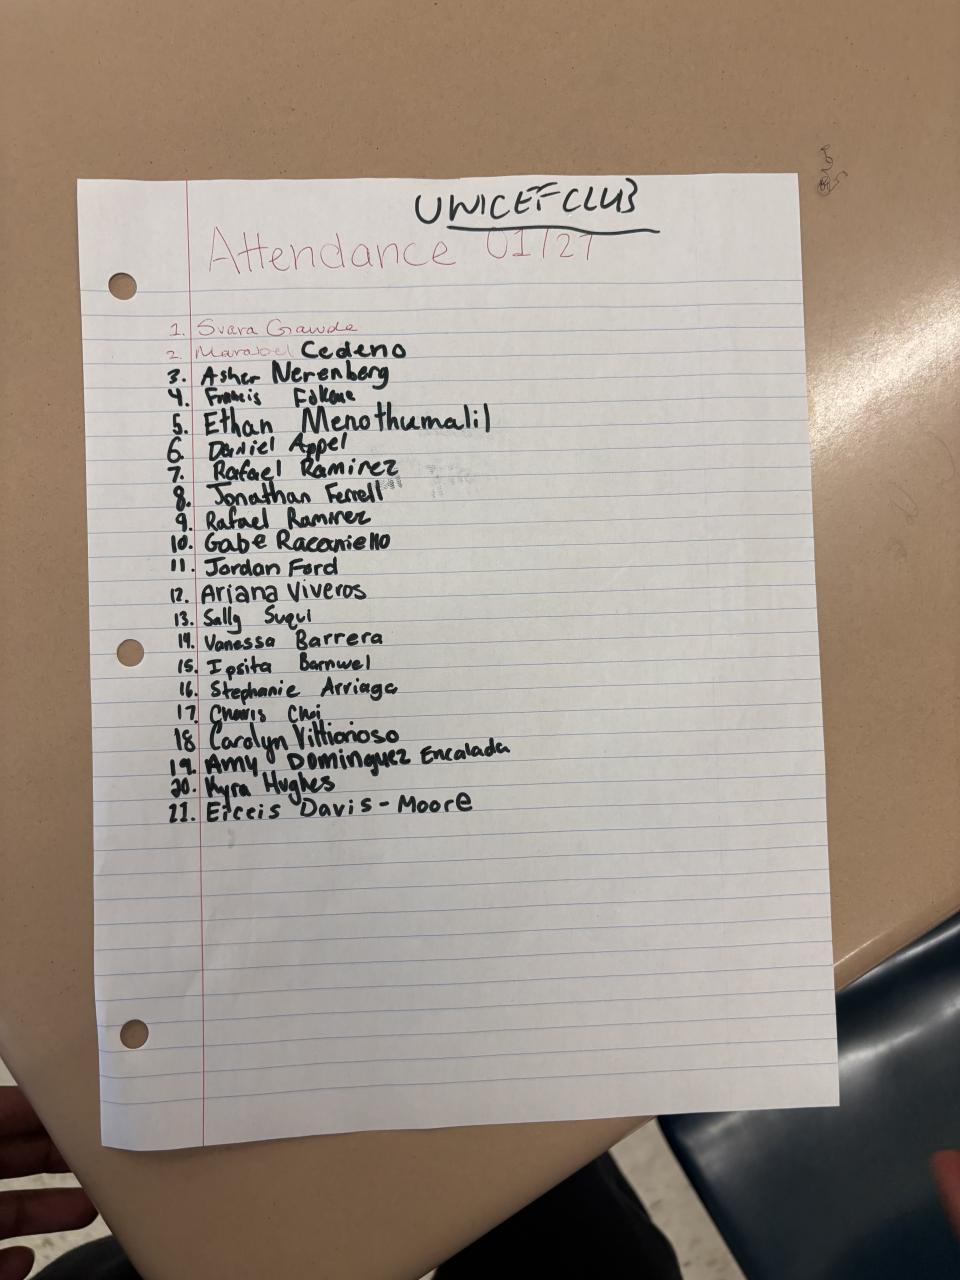 UNICEF CLUB
Attendance 01/27
1. Svara Gawde
2. Marabel Cedeno
3. Asher Nerenberg
4. Francis
5. Ethan Menothumalil
6. Daniel Appel
7. Rafael Ramirez
8. Jonathan Ferrell
9. Rafael Ramirez
10. Gabe Racaniello
11. Jordan Ford
12. Ariana Viveros
13. Sally Suqui
14. Vanessa Barrera
15. Ipsita Barnwel
16. Stephanie Arriaga
17. Charis Choi
18 Carolyn Vittorioso
19. Amy Dominguez Encalada
20. Kyra Hughes
21. Erceis Davis-Moore